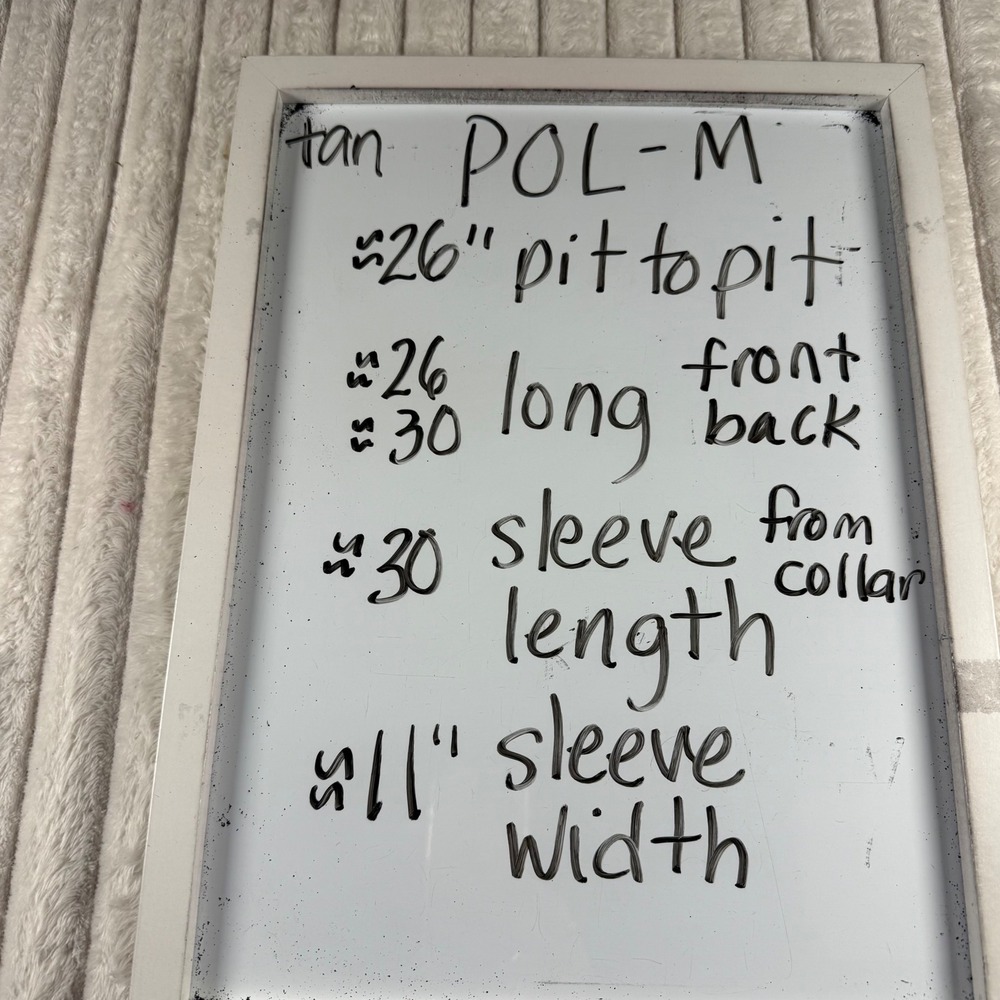 tan POL-M
≈26" pit to pit
≈26 long front
≈30 back
≈30 sleeve from
length collar
≈11" sleeve
width